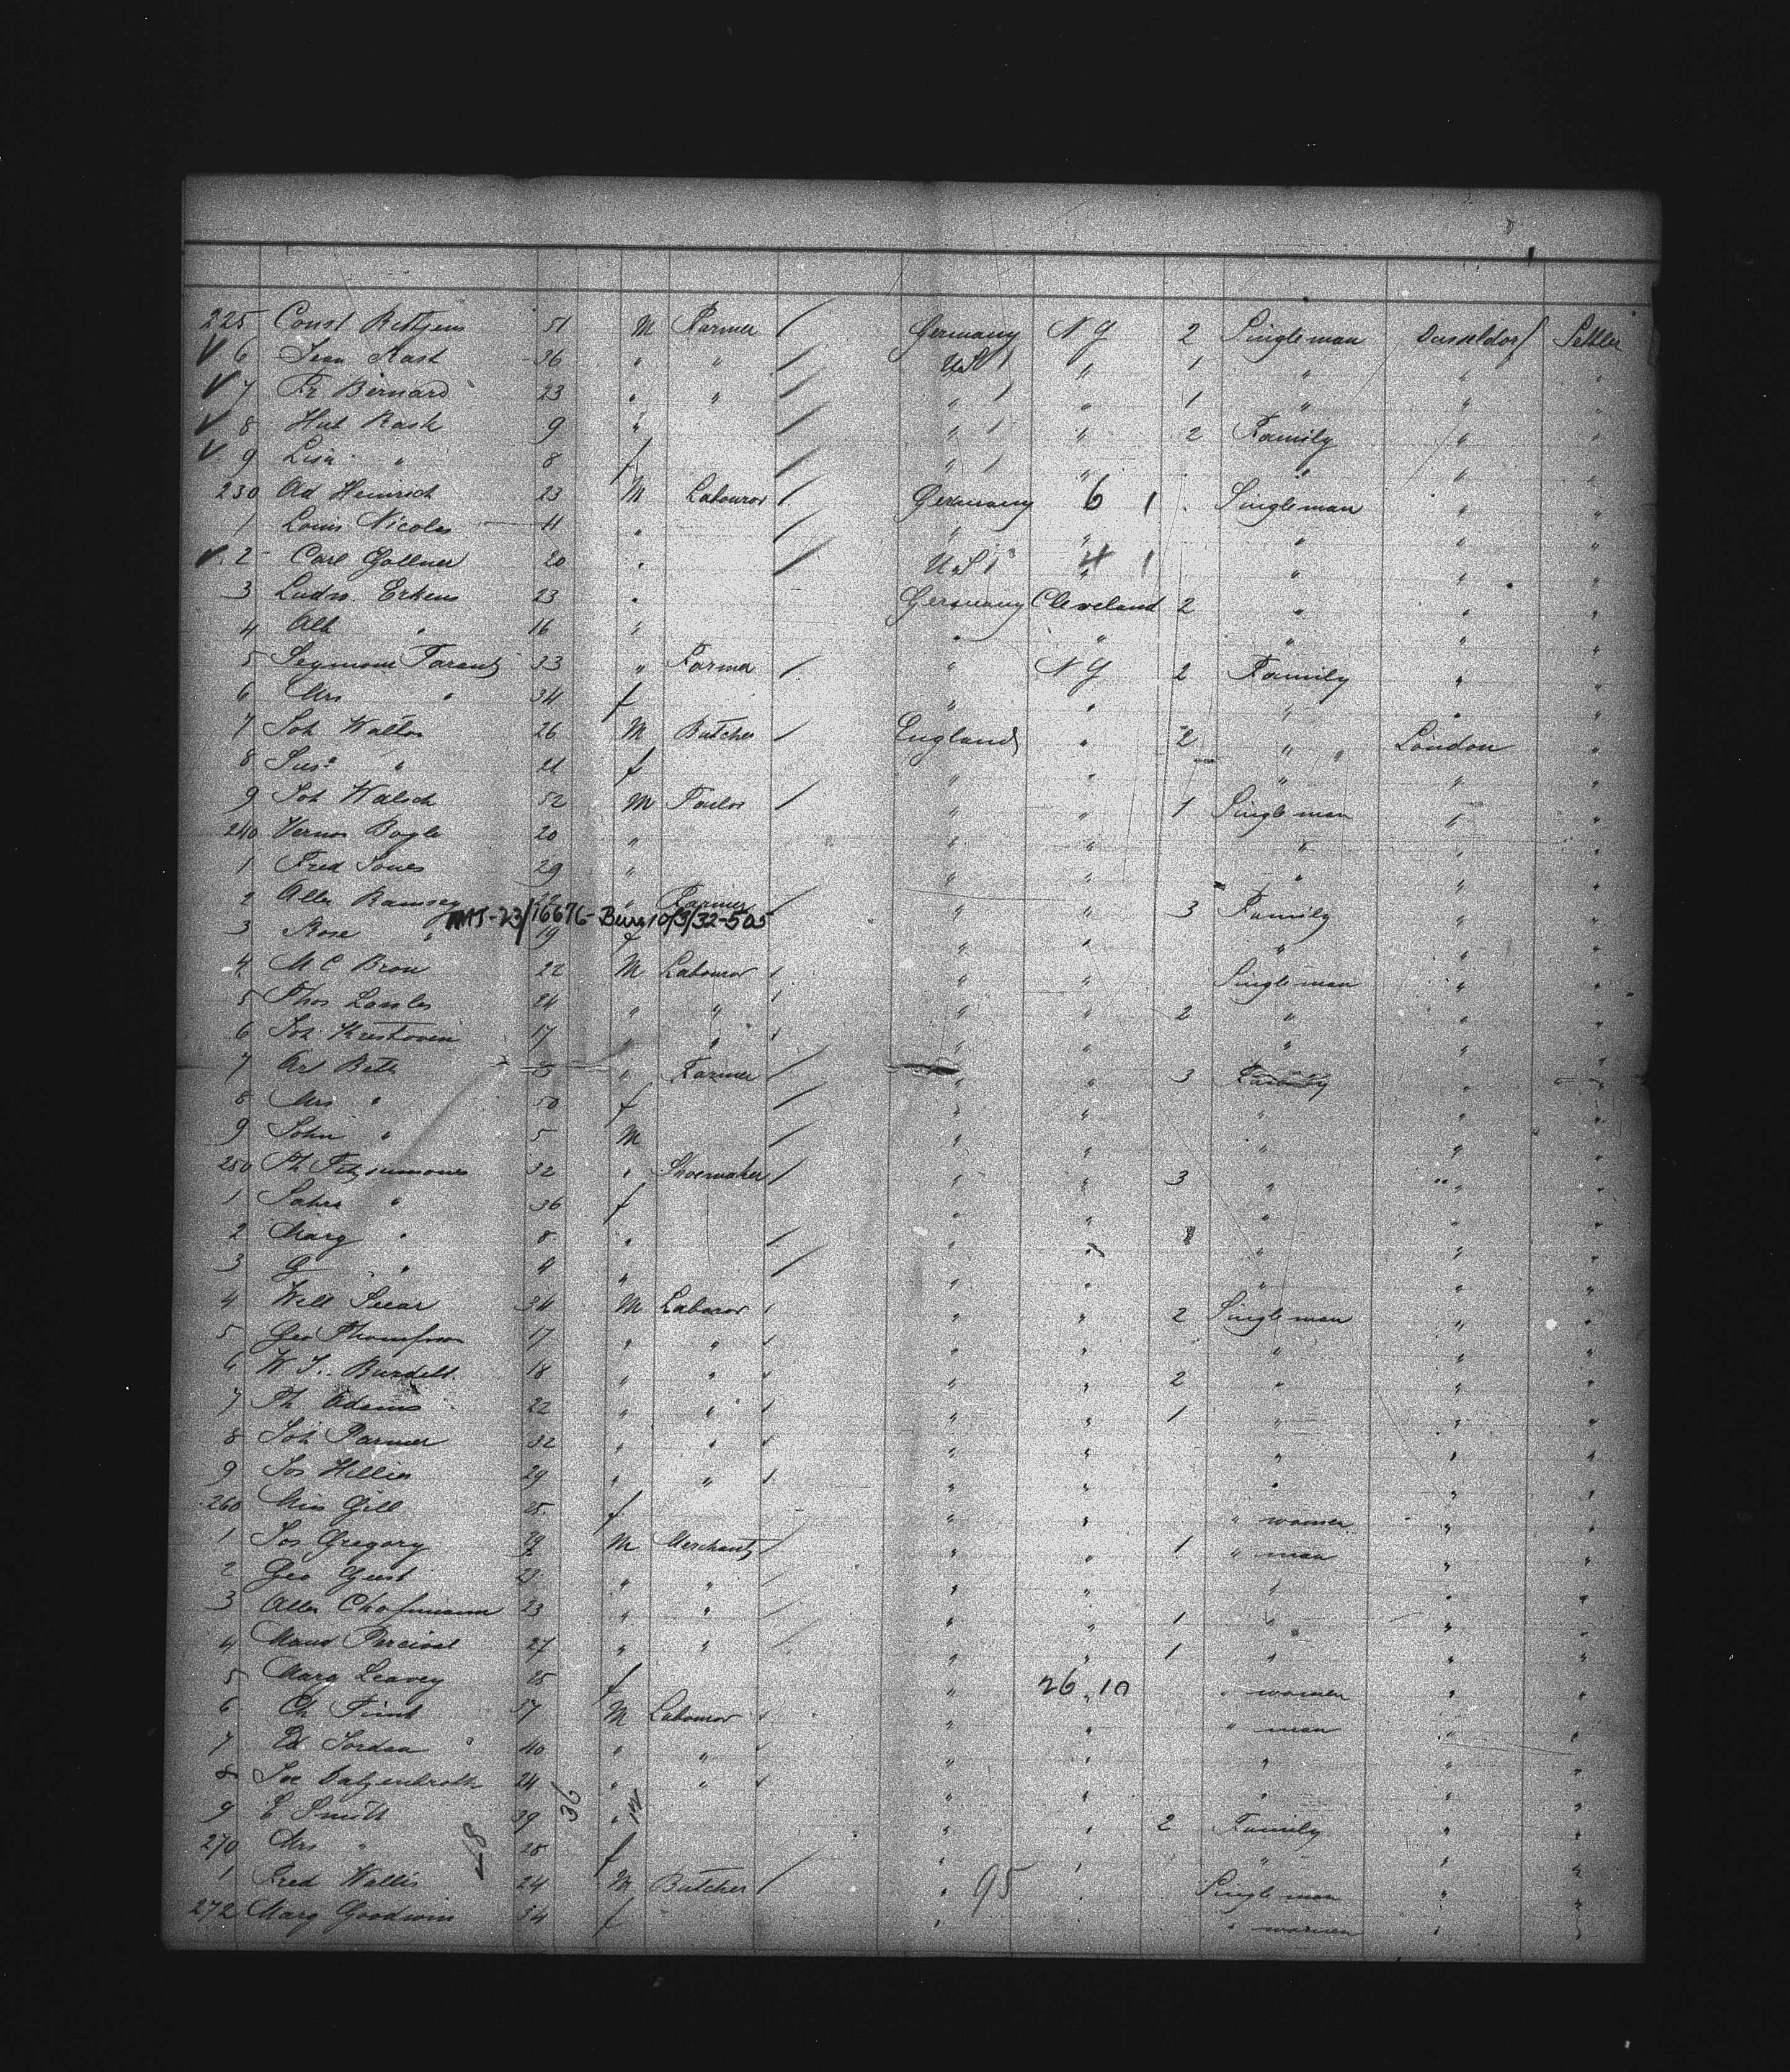 225 Const Bettjens 51 M Farmer / Germany N Y 2 Single man Dusseldorf Settler
✓ 6 Jean Rash 36 " " / U.S. 1 " 1 " " "
✓ 7 Fr. Bernard 23 " " / " 1 " 1 " " "
✓ 8 Hub Rash 9 " / " 1 " 2 Family " "
✓ 9 Lisa " 8 f / " 1 " " " "
230 Ad Heinrich 23 M Labourer / Germany 6 1 Single man " "
1 Louis Nicolas 11 " / " " " " "
✓ 2 Carl Gollner 20 " / U.S. 1 4 1 " " "
3 Ludw. Erkens 23 " Germany Cleveland 2 " " "
4 Alb " 16 " " " " " "
5 Seymour Tarent 33 " Farmer / " N Y 2 Family " "
6 Mrs " 34 f " " " " "
7 Joh Walton 26 M Butcher / England " 2 " " London "
8 Sus. " 21 f " " " " "
9 Joh Walsch 52 M Tailor / " " 1 Single man " "
240 Vernon Bogle 20 " " " " " "
1 Fred Jones 29 " " " " " "
2 Allen Ramsey 22 " Farmer / " " 3 Family " "
16676
3 Rose " 19 f " " " " "
4 M C Brow 22 M Labourer / " " Single man " "
5 Thos 24 " " / " " 2 " " "
6 Joh 17 " " / " " " " "
7 " Farmer / " " 3 Family " "
8 Mrs " 50 f / " " " " "
9 John " 5 M / " " " " "
250 Th Fitzsimmons 32 " Shoemaker / " " 3 " " "
1 " 36 f " " " " "
2 Marg " 8 " / " " " " "
3 G " 4 " / " " " " "
4 Will 34 M Labourer / " " 2 Single man " "
5 Geo Thompson 17 " " / " " " " "
6 W J. Burdett 18 " " / " " 2 " " "
7 Th Adams 22 " " / " " 1 " " "
8 Joh Parmer 32 " " / " " " " "
9 Jos Hillier 29 " " / " " " " "
260 Miss Gill 25 f " " " women " "
1 Jos Gregory 39 M Merchant / " " 1 " man " "
2 Geo Guest 23 " " / " " " " "
3 Allen Chapmann 23 " " / " " 1 " " "
4 Maud Percival 27 " " / " " 1 " " "
5 Marg Leavey 25 f " 26 10 " women " "
6 Ch 37 M Labourer / " " " man " "
7 Ed. Jordan 40 " " / " " " " "
8 Joe 24 " " / " " " " "
9 E Smith 39 " " " 2 Family " "
36
270 Mrs " 28 f " " " " "
1 Fred Wallis 24 M Butcher / " 95 " Single man " "
272 Marg Goodwin 34 f " " women " "